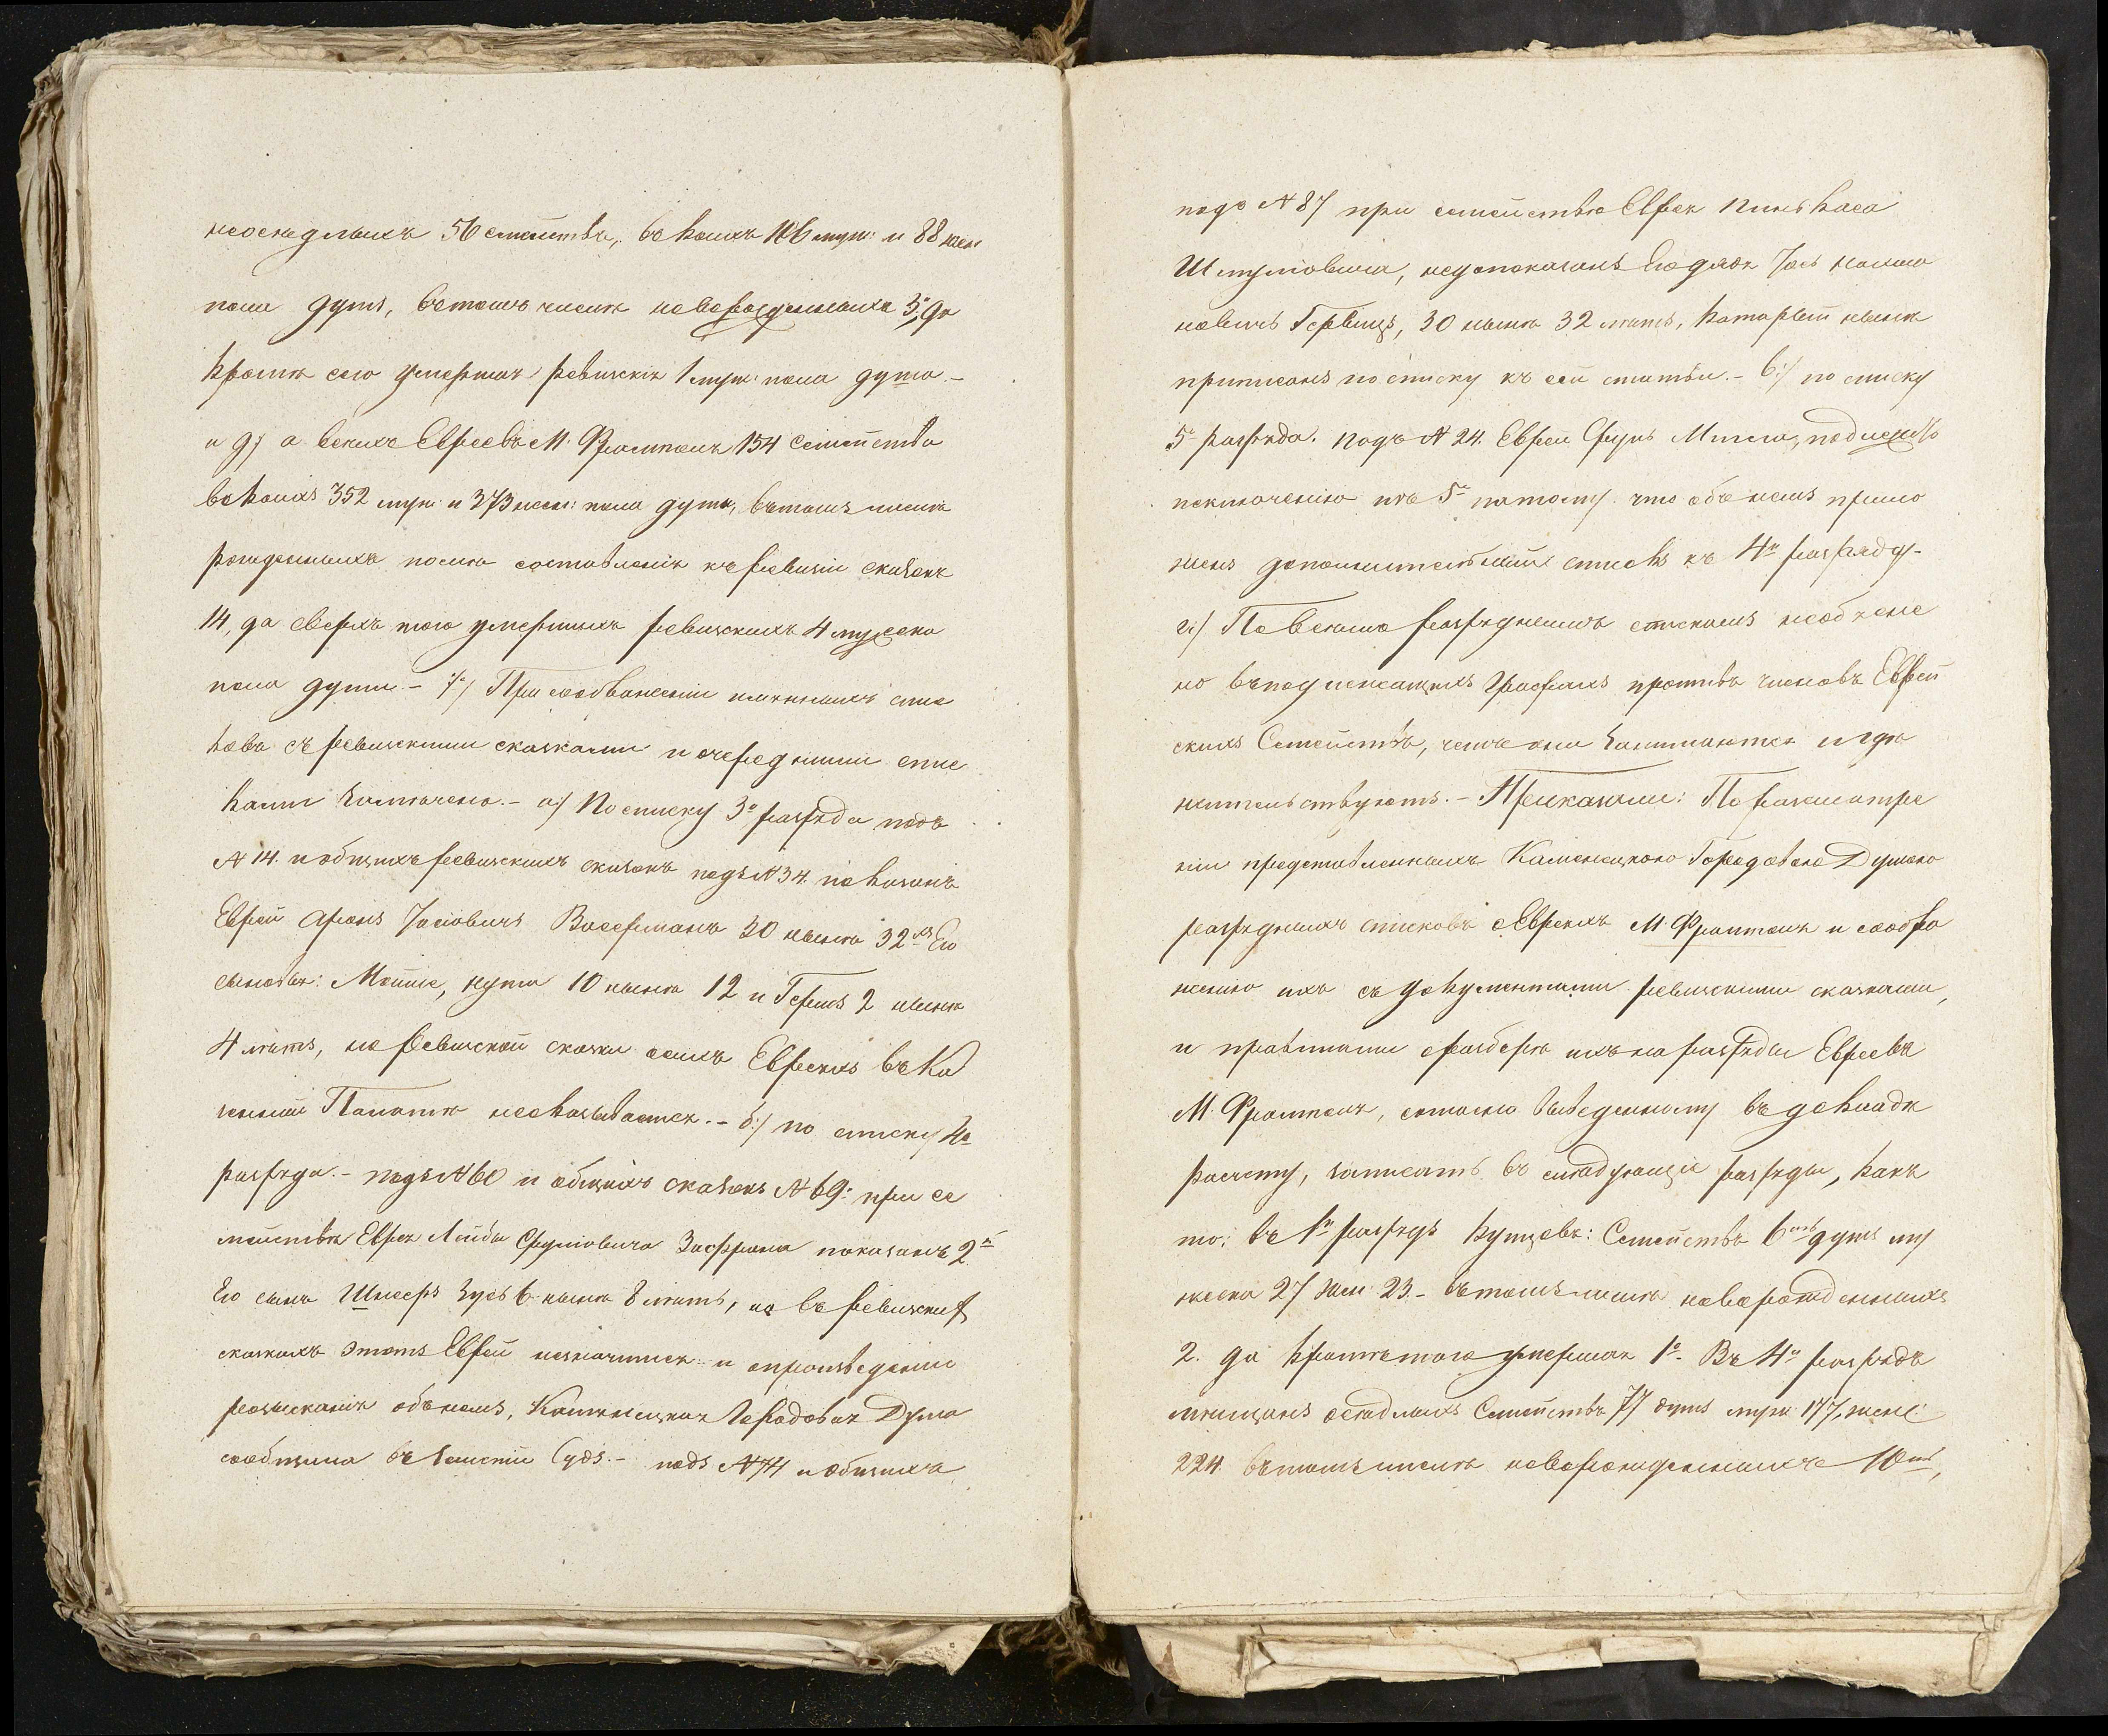 неоседлыхъ 56 семействъ, въ коихъ 106 муж: и 88 жен
пола душъ, въ томъ числѣ новорожденныхъ 3, да
кромѣ сего умершая ревизскія 1 муж: пола душа.-
и д) а всехъ Евреевъ М. Фрампомъ 154 Семейства
въ коихъ 352 муж: и 373 жен: пола душъ, въ томъ числѣ
рожденныхъ послѣ составленія къ ревизіи сказокъ
14, да сверхъ того умершихъ ревизскихъ 4 мужеска
пола души.- При соображеніи именныхъ спис
ковъ съ ревизскими сказками и очередними спис
ками замѣчено.- а) По списку 3го разряда подъ
№ 14. и общихъ ревизскихъ сказокъ подъ № 34. показанъ
Еврей Аронъ Іосіовичъ Вассерманъ 30 нынѣ 32 лѣ Его
сыновья: Мойше, Нути 10 нынѣ 12 и Гершъ 2 нынѣ
4 лѣтъ, но ревизской сказки осихъ Евреяхъ въ Ка
зенной Палатѣ неоказывается.- б) по списку 4а
разряда.- подъ № 60 и общихъ сказокъ № 69: при се
мействѣ Еврея Лейбы Сруліовича показанъ 2й
Его сынъ Шмееръ Зусь 6 нынѣ 8 лѣтъ, но въ ревизскихъ
сказкахъ этотъ Еврей незначится и опроизведеніи
розысканія объ немъ, Каменецкая Городовая Дума
сообщила въ Земскій Судъ.- подъ № 74 и общихъ
подъ № 87 при семействѣ Еврея Пинькаса
Шмуліовича, недопоказанъ Его дядя Іось
новичъ Гервицъ, 30 нынѣ 32 лѣтъ, который нынѣ
приписанъ по списку къ сей статьи.- в) по списку
5го разряда. подъ № 24. Еврей Срулъ подлежитъ
исключенію изъ 5го потому что объ немъ прило
женъ дополнительный списокъ къ 4му разряду-
г) По всемъ разряднымъ спискамъ необъясне
но въ подлежащихъ графахъ противъ числовъ Еврей
скихъ Семействъ, чемъ они занимаются и где
жительствуютъ.- Приказали: По разсмотре
ніи представленныхъ Каменецкою Городовою Думою
разрядныхъ списковъ о Евреяхъ М. Фрампомъ и сообра
женію ихъ съ документами ревизскими сказками,
и правилами о разборѣ ихъ на разряды Евреевъ
М. Фрампомъ, согласно выведенному въ докладѣ
расчету, записать въ слѣдующіе разряды, какъ
то; въ 1й разрядъ купцевъ: Семействъ 6ть душъ му
жеска 27 жен: 23.- въ томъ числѣ новорожденныхъ
2. да кромѣ того умершая 1а.- Въ 4й разрядъ
мѣщанъ оседлыхъ Семействъ 77 душъ муж: 177, женс:
224. въ томъ числѣ новорожденныхъ 10ть,